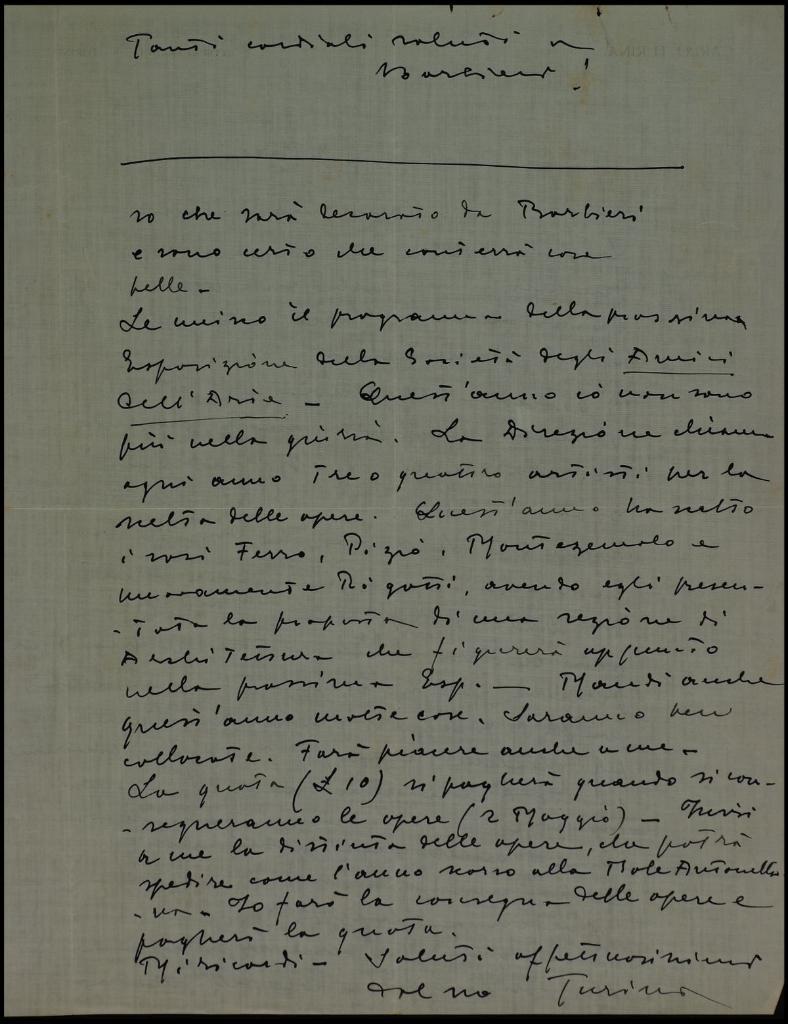 Tanti cordiali saluti a
Barbieri!
so che sarà decorato da Barbieri
e sono certo che conterrà cose
belle -
Le unisco il programma della prossima
Esposizione della Società degli Amici
dell'Arte - Quest'anno io non sono
più nella giuria. La Direzione chiama
ogni anno tre o quattro artisti per la
scelta delle opere. Quest'anno ha scelto
i soci Ferro, Pizio, Montezemolo e
nuovamente Rigotti, avendo egli presen-
-tato la proposta di una sezione di
Architettura che figurerà appunto
nella prossima Esp. - Mandi anche
quest'anno molte cose. Saranno ben
collocate. Farà piacere anche a me -
La quota (£ 10) si pagherà quando si con-
-segneranno le opere (2 Maggio) - Invii
a me la distinta delle opere, che potrà
spedire come l'anno scorso alla Mole Antonella
-na - Io farò la consegna delle opere e
pagherò la quota.
Mi ricordi - Saluti affettuosissimi
dal suo Turina